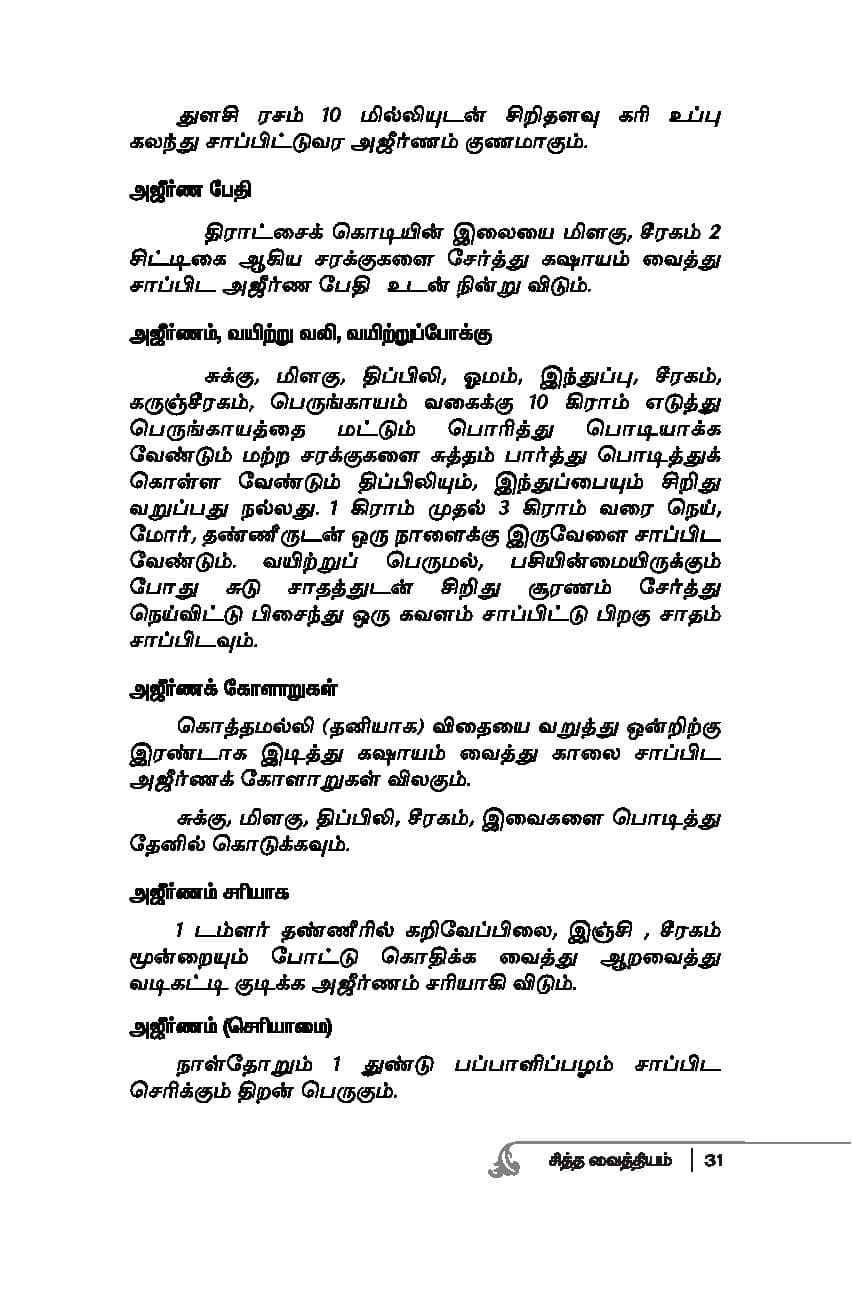 துளசி ரசம் 10 மில்லியுடன் சிறிதளவு கரி உப்பு
கலந்து சாப்பிட்டுவர அஜீர்ணம் குணமாகும்.
அஜீர்ண பேதி
திராட்சைக் கொடியின் இலையை மிளகு, சீரகம் 2
சிட்டிகை ஆகிய சரக்குகளை சேர்த்து கஷாயம் வைத்து
சாப்பிட அஜீர்ண பேதி உடன் நின்று விடும்.
அஜீர்ணம், வயிற்று வலி, வயிற்றுப்போக்கு
சுக்கு, மிளகு, திப்பிலி, ஓமம், இந்துப்பு, சீரகம்,
கருஞ்சீரகம், பெருங்காயம் வகைக்கு 10 கிராம் எடுத்து
பெருங்காயத்தை மட்டும் பொரித்து பொடியாக்க
வேண்டும் மற்ற சரக்குகளை சுத்தம் பார்த்து பொடித்துக்
கொள்ள வேண்டும் திப்பிலியும், இந்துப்பையும் சிறிது
வறுப்பது நல்லது. 1 கிராம் முதல் 3 கிராம் வரை நெய்,
மோர், தண்ணீருடன் ஒரு நாளைக்கு இருவேளை சாப்பிட
வேண்டும். வயிற்றுப் பெருமல், பசியின்மையிருக்கும்
போது சுடு சாதத்துடன் சிறிது சூரணம் சேர்த்து
நெய்விட்டு பிசைந்து ஒரு கவளம் சாப்பிட்டு பிறகு சாதம்
சாப்பிடவும்.
அஜீர்ணக் கோளாறுகள்
கொத்தமல்லி (தனியாக) விதையை வறுத்து ஒன்றிற்கு
இரண்டாக இடித்து கஷாயம் வைத்து காலை சாப்பிட
அஜீர்ணக் கோளாறுகள் விலகும்.
சுக்கு, மிளகு, திப்பிலி, சீரகம், இவைகளை பொடித்து
தேனில் கொடுக்கவும்.
அஜீர்ணம் சரியாக
1 டம்ளர் தண்ணீரில் கறிவேப்பிலை, இஞ்சி , சீரகம்
மூன்றையும் போட்டு கொதிக்க வைத்து ஆறவைத்து
வடிகட்டி குடிக்க அஜீர்ணம் சரியாகி விடும்.
அஜீர்ணம் (செரியாமை)
நாள்தோறும் 1 துண்டு பப்பாளிப்பழம் சாப்பிட
செரிக்கும் திறன் பெருகும்.
சித்த வைத்தியம் | 31